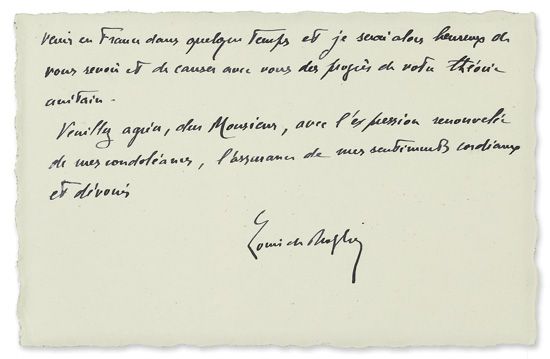 venir en France dans quelque temps et je serai alors heureux de
vous revoir et de causer avec vous des progrès de votre théorie
unitaire.
Veuillez agréer, cher Monsieur, avec l'expression renouvelée
de mes condoléances, l'assurance de mes sentiments cordiaux
et dévoués
Louis de Broglie